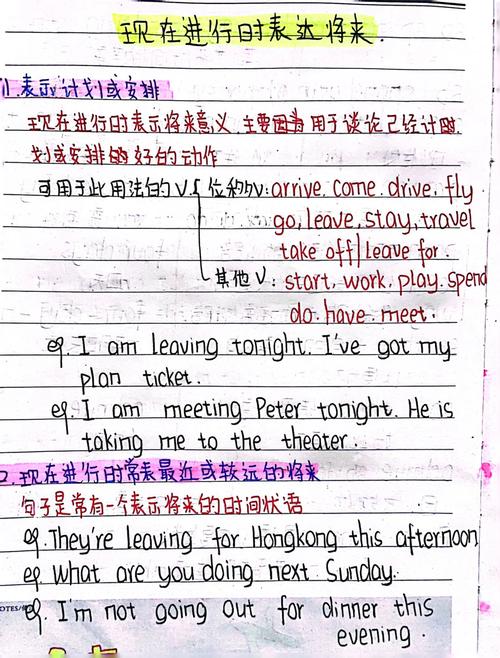 现在进行时表达将来.
1.表示计划或安排
现在进行时表示将来意义.主要因为用于谈论已经计时
划或安排的好的动作
可用于此用法的V { 位移的v: arrive. come. drive. fly
go, leave, stay, travel
take off | leave for.
其他V: start, work, play. spend
do. have. meet.
eg. I am leaving tonight. I've got my
plan ticket.
eg. I am meeting Peter tonight. He is
taking me to the theater.
2.现在进行时常表最近或较远的将来
句子是常有一个表示将来的时间状语
eg. They're leaving for Hongkong this afternoon
eg What are you doing next Sunday.
OTES/
eg. I'm not going out for dinner this
evening.